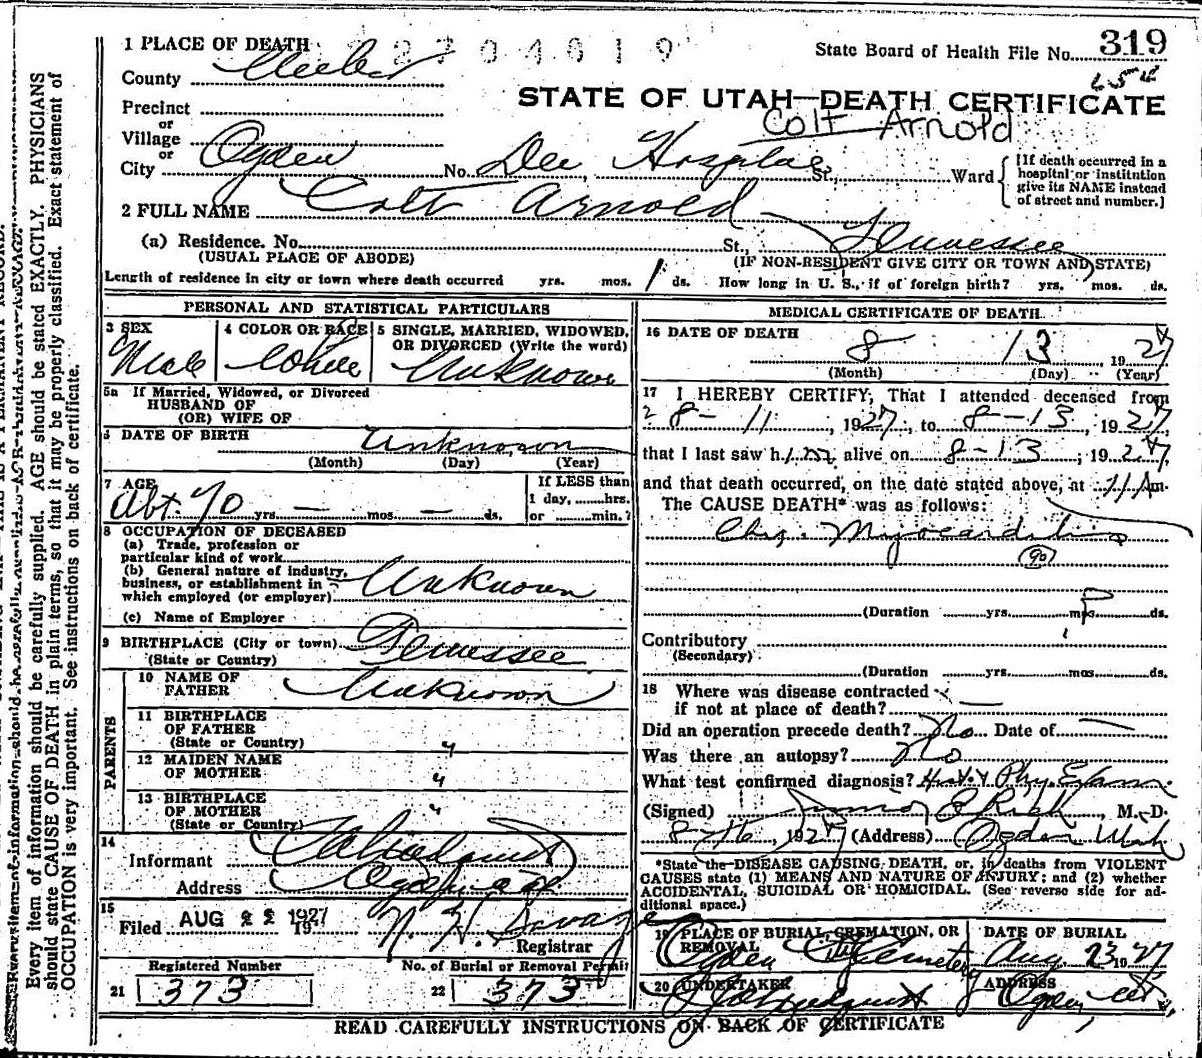 1 PLACE OF DEATH 2704619
State Board of Health File No. 319
County Weber
65
STATE OF UTAH—DEATH CERTIFICATE
Precinct
or
Colt Arnold
Village
or
City Ogden No. Dee Hospital St., Ward
[If death occurred in a
hospital or institution
give its NAME instead
of street and number.]
2 FULL NAME Colt Arnold
(a) Residence. No. St., Tennessee
(USUAL PLACE OF ABODE) (IF NON-RESIDENT GIVE CITY OR TOWN AND STATE)
Length of residence in city or town where death occurred yrs. mos. 1 ds. How long in U. S., if of foreign birth? yrs. mos. ds.
PERSONAL AND STATISTICAL PARTICULARS
3 SEX 4 COLOR OR RACE 5 SINGLE, MARRIED, WIDOWED,
OR DIVORCED (Write the word)
Male White Unknown
5a If Married, Widowed, or Divorced
HUSBAND OF
(OR) WIFE OF
6 DATE OF BIRTH Unknown
(Month) (Day) (Year)
7 AGE If LESS than
1 day, hrs.
Abt. 70 yrs. — mos. — ds. or min.?
8 OCCUPATION OF DECEASED
(a) Trade, profession or
particular kind of work
(b) General nature of industry,
business, or establishment in
which employed (or employer) Unknown
(c) Name of Employer
9 BIRTHPLACE (City or town)
(State or Country) Tennessee
PARENTS
10 NAME OF
FATHER Unknown
11 BIRTHPLACE
OF FATHER
(State or Country) "
12 MAIDEN NAME
OF MOTHER "
13 BIRTHPLACE
OF MOTHER "
(State or Country)
14
Informant
Address
15
Filed AUG 22 1927
19
Registrar
Registered Number No. of Burial or Removal Permit
21 373 22 373
MEDICAL CERTIFICATE OF DEATH
16 DATE OF DEATH
8 13, 1927
(Month) (Day) (Year)
17 I HEREBY CERTIFY, That I attended deceased from
8-11, 1927, to 8-13, 1927,
that I last saw him alive on 8-13, 1927,
and that death occurred, on the date stated above, at 11 Am.
The CAUSE DEATH* was as follows:
Chr. Myocarditis
90
(Duration yrs. mos. ds.
Contributory
(Secondary)
(Duration yrs. mos. ds.
18 Where was disease contracted
if not at place of death? —
Did an operation precede death? No Date of —
Was there an autopsy? No
What test confirmed diagnosis? Hist. & Phy. Exam.
(Signed) M. D.
8-16, 1927 (Address) Ogden Utah
*State the DISEASE CAUSING DEATH, or, in deaths from VIOLENT
CAUSES state (1) MEANS AND NATURE OF INJURY; and (2) whether
ACCIDENTAL, SUICIDAL OR HOMICIDAL. (See reverse side for ad-
ditional space.)
19 PLACE OF BURIAL, CREMATION, OR
REMOVAL
Ogden City Cemetery
DATE OF BURIAL
Aug. 23 1927
20 UNDERTAKER ADDRESS
Ogden, Ut
READ CAREFULLY INSTRUCTIONS ON BACK OF CERTIFICATE
Every item of information should be carefully supplied. AGE should be stated EXACTLY. PHYSICIANS
should state CAUSE OF DEATH in plain terms, so that it may be properly classified. Exact statement of
OCCUPATION is very important. See instructions on back of certificate.